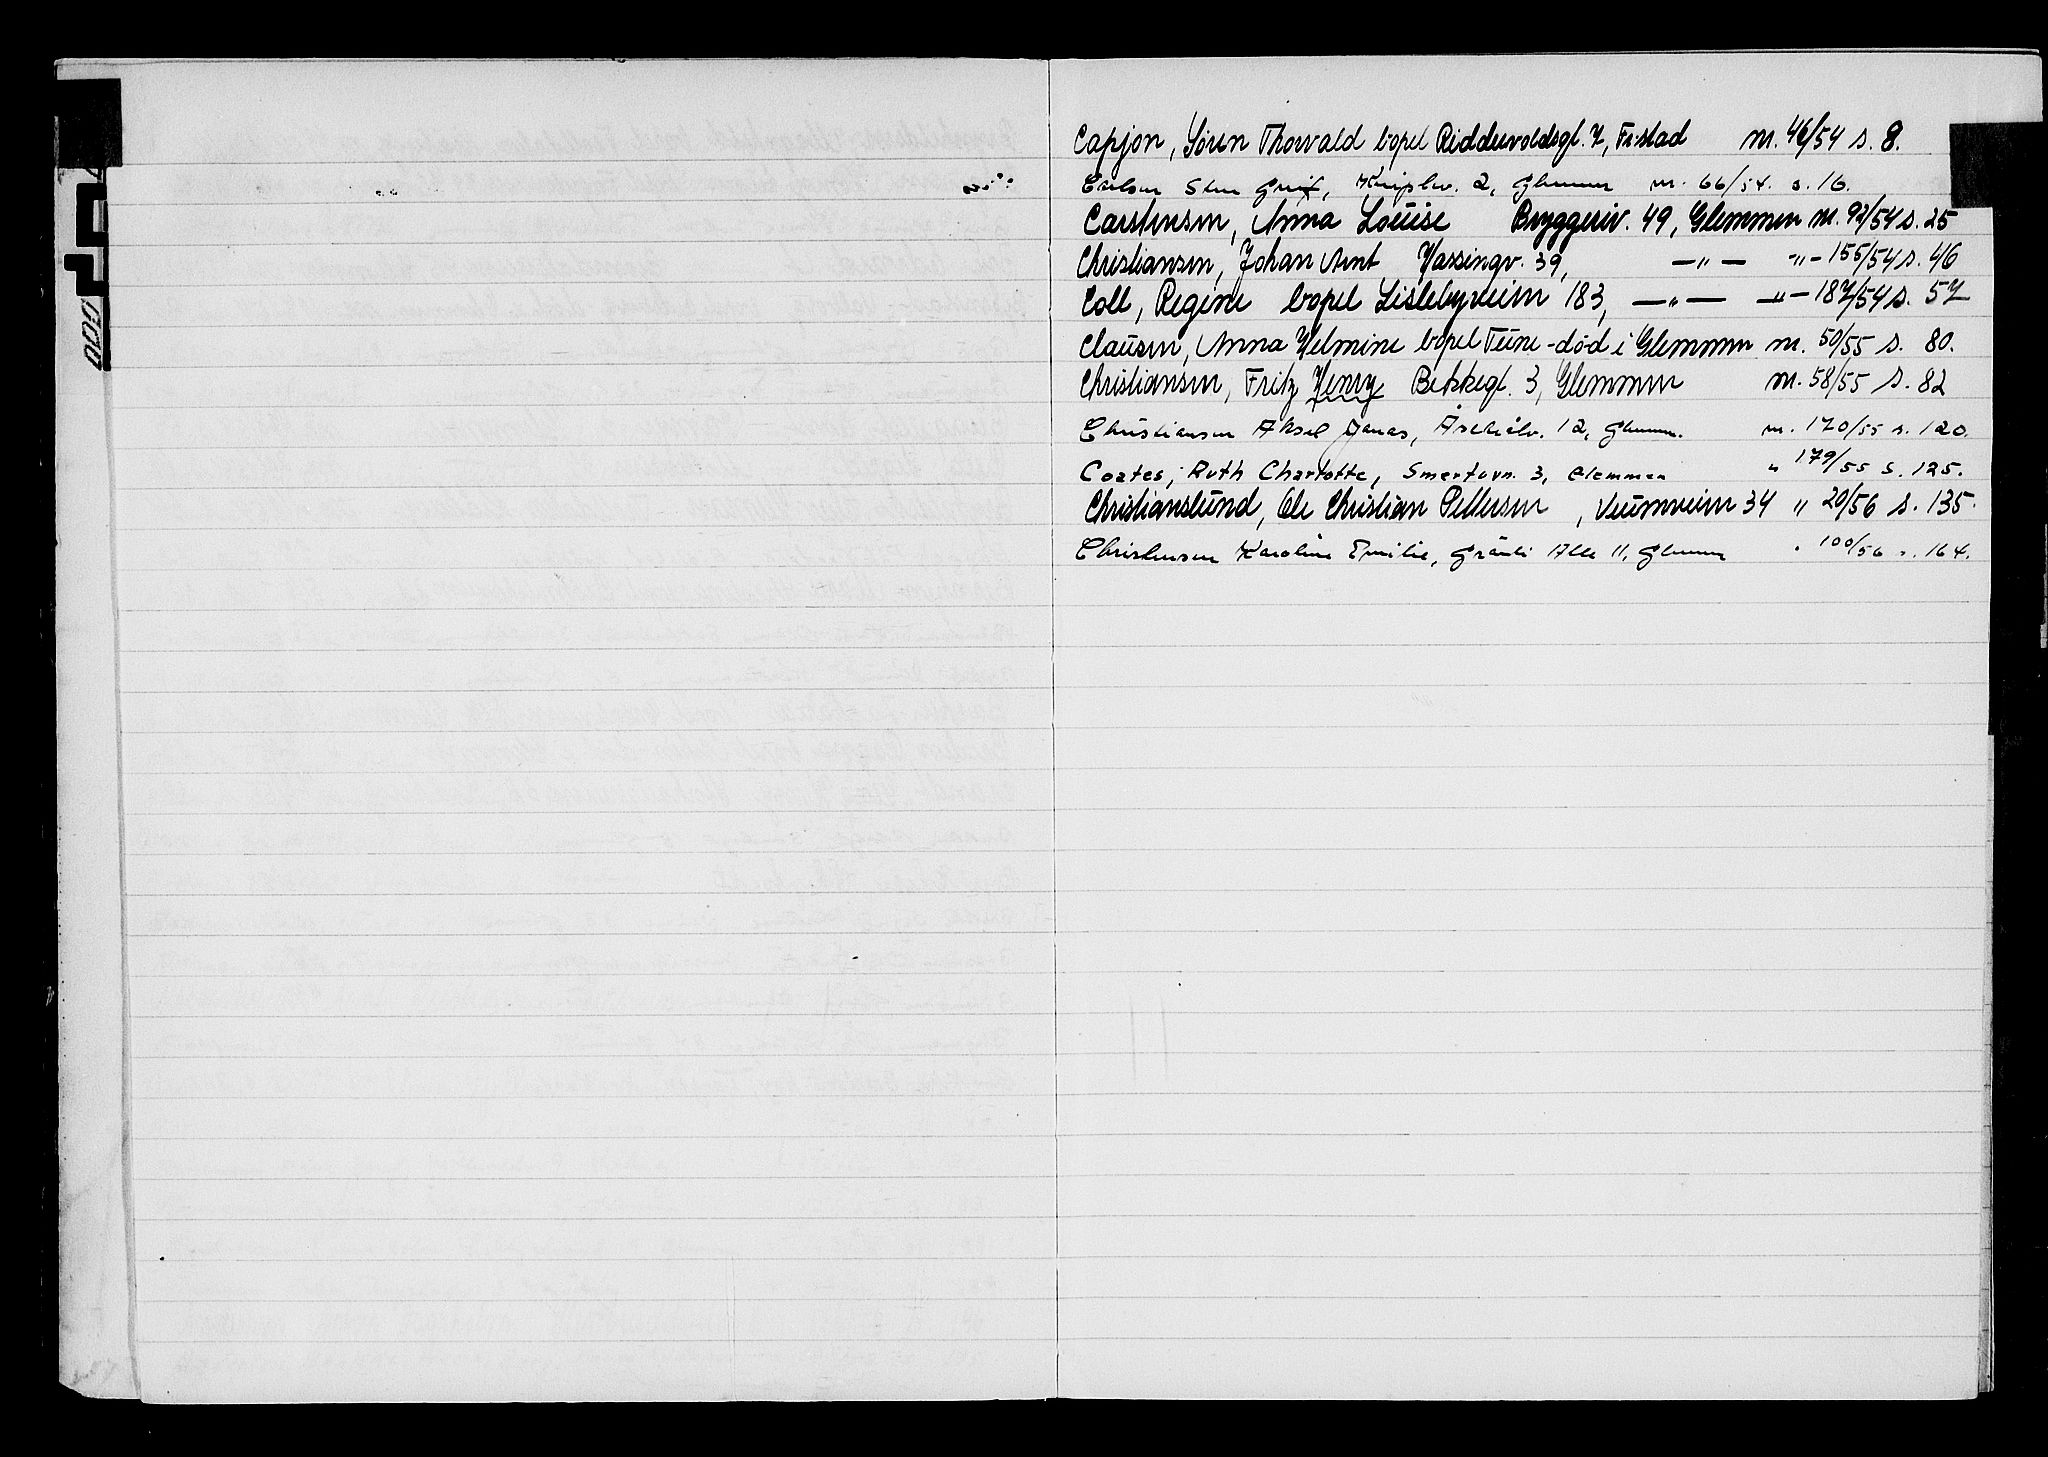 Capjon, Søren Thorvald bopel Riddervoldsgt. 7, Fr.stad nr. 46/54 s. 8.
Carlsen Sten Grif, 2, Glemmen nr. 66/54. s. 16.
Carstensen, Anna Louise Bryggeriv. 49, Glemmen nr. 92/54 s. 25
Christiansen, Johan Arnt Hassingv. 39, —"— "— 155/54 s. 46
Coll, Regine bopel Lislebyveien 183, —"— —"— 187/54 s. 57
Clausen, Anna Helmine bopel Tune - død i Glemmen nr. 50/55 s. 80.
Christiansen, Fritz Henry Bekkegt. 3, Glemmen nr. 58/55 s. 82
Christiansen Aksel Jonas, 12, Glemmen. nr. 170/55 s. 120.
Coates, Ruth Charlotte, Smertuvn. 3, Glemmen " 179/55 s. 125.
Christianslund, Ole Christian Pettersen, Veumveien 34 " 20/56 s. 135.
Christensen Karoline Emilie, Gråtli Alle 11, Glemmen " 100/56 s. 164.